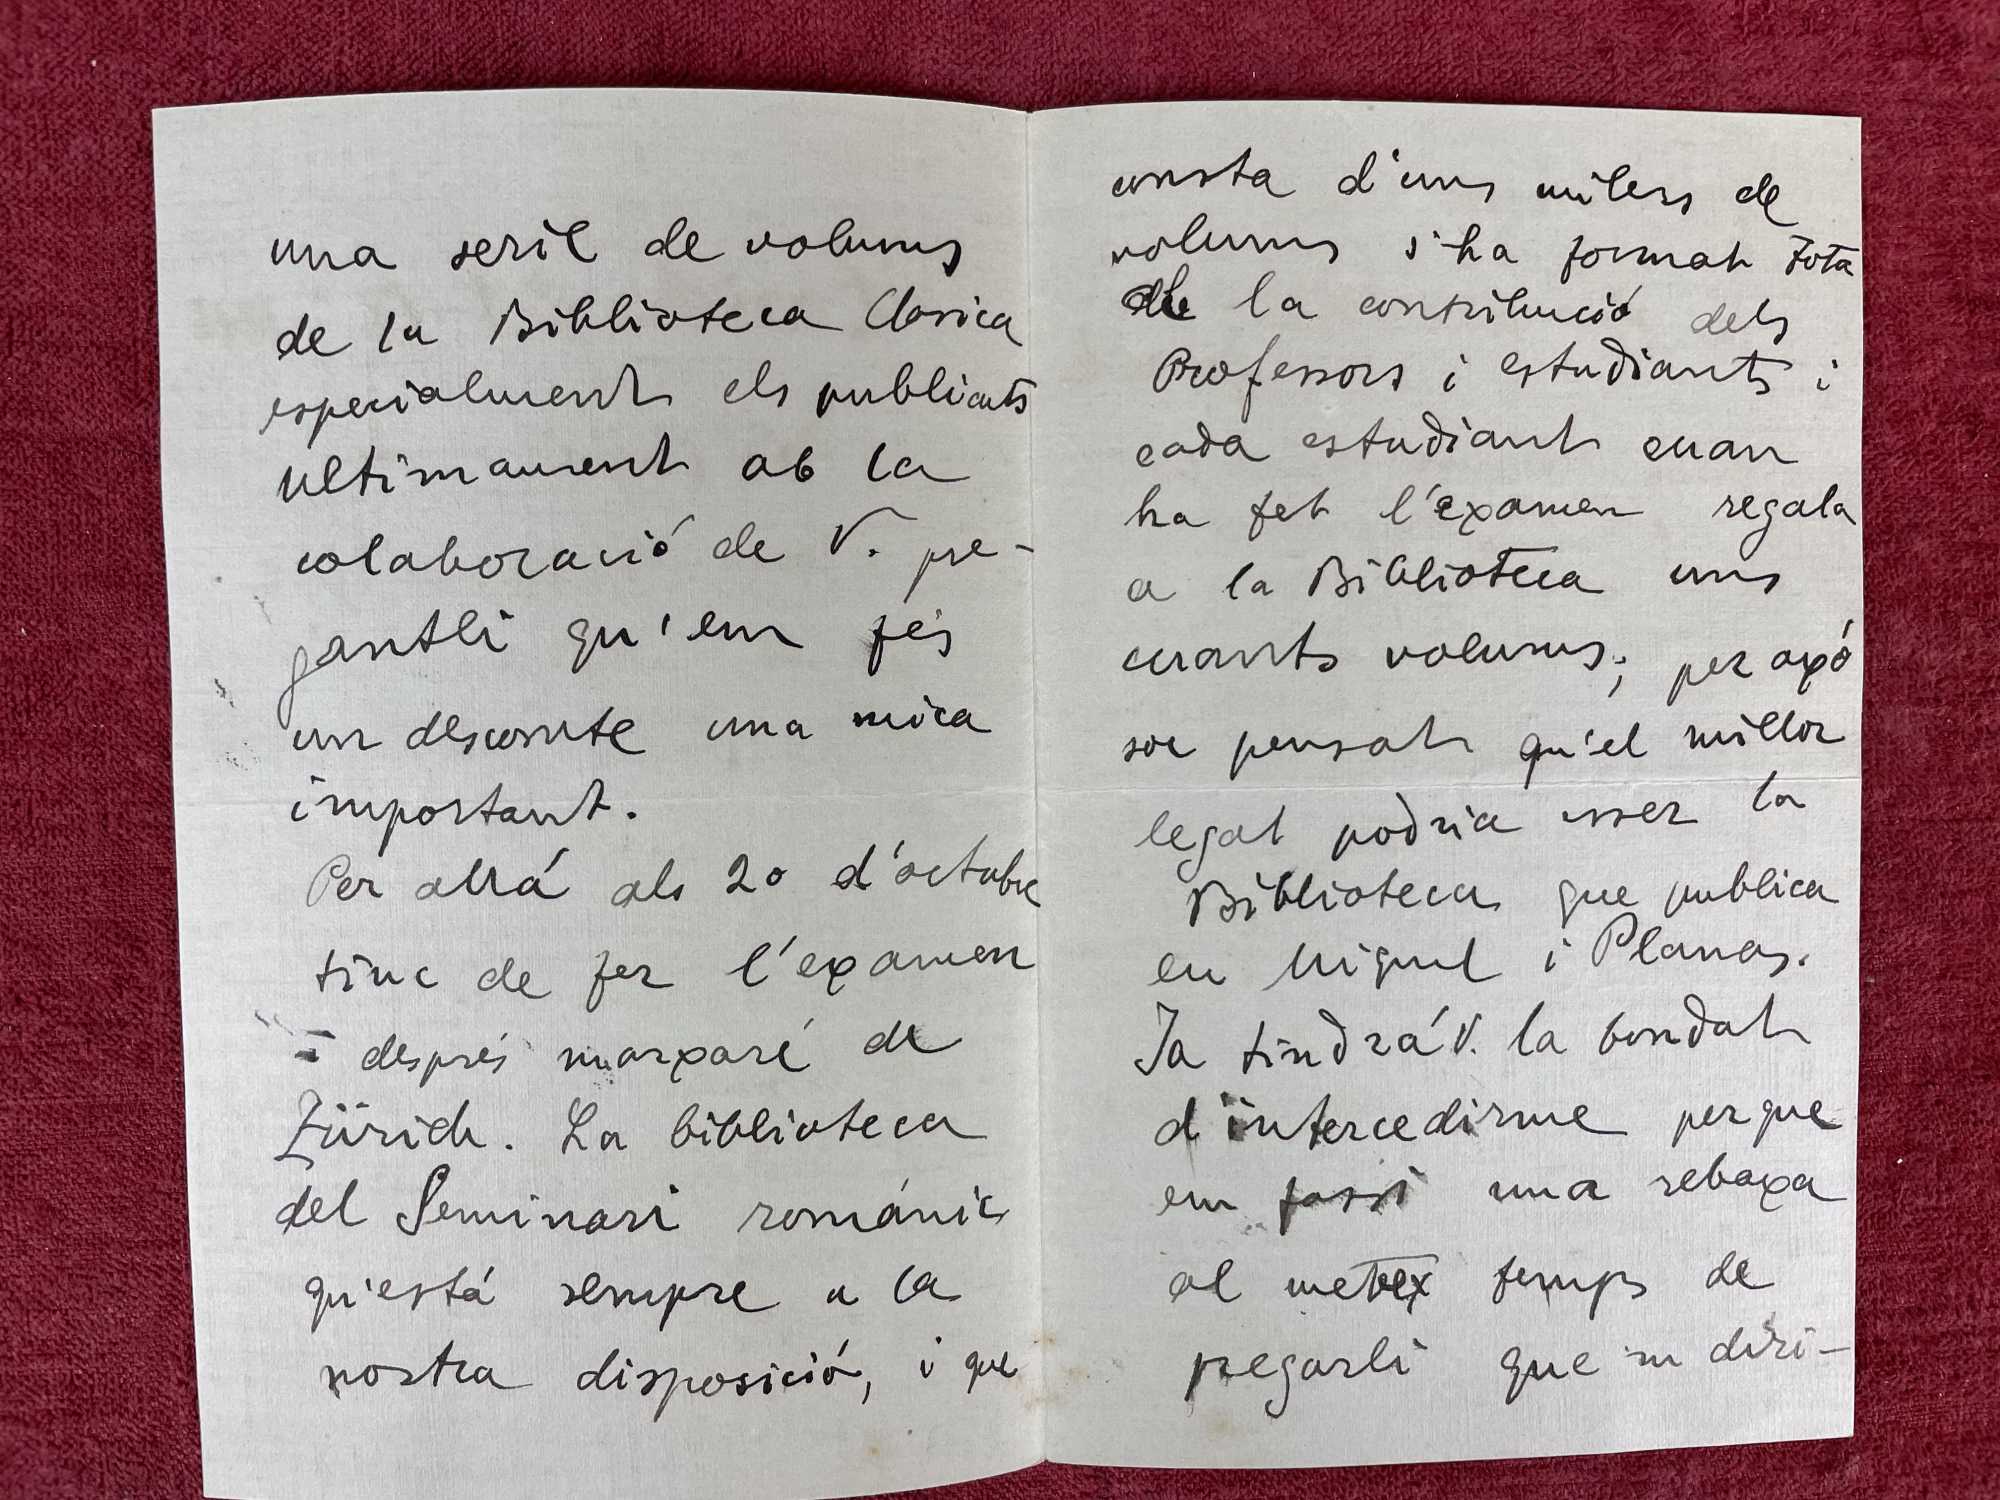 una serie de volums
de la Biblioteca Clasica
especialment els publicats
ultimament ab la
colaboració de V. pre-
gantli qu'em fés
un descomte una mica
important.
Per allá als 20 d'octubre
tinc de fer l'examen
i després marxaré de
Zürich. La biblioteca
del Seminari románic
qu'está sempre a la
nostra disposició, i que
consta d'uns milers de
volums s'ha format tota
de la contribució dels
Professors i estudiants i
cada estudiant cuan
ha fet l'examen regala
a la Biblioteca uns
cuants volums; per axó
soc pensat qu'el millor
legat podria esser la
Biblioteca que publica
en Miquel i Planas.
Ja tindrá V. la bondat
d'intercedirme perque
em fassi una rebaxa
al metex temps de
pregarli que m diri-